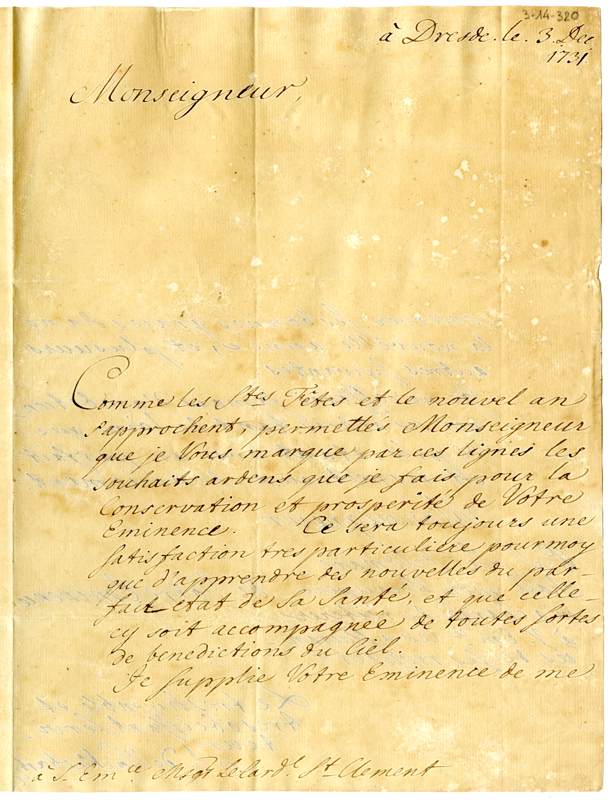 3-14-320
à Dresde. le. 3. Dec
1731
Monseigneur,
Comme les Stes Fêtes et le nouvel an
s'approchent, permettés Monseigneur
que je Vous marque par ces lignes les
souhaits ardens que je fais pour la
Conservation et prosperité de Votre
Eminence. Ce sera toujours une
satisfaction tres particuliere pour moy
que d'apprendre des nouvelles du par-
fait etat de sa santé, et que celle-
cy soit accompagnée de toutes sortes
de benedictions du Ciel.
Je supplie Votre Eminence de me
à S. Em ce Msgr Le Card l. St Clement